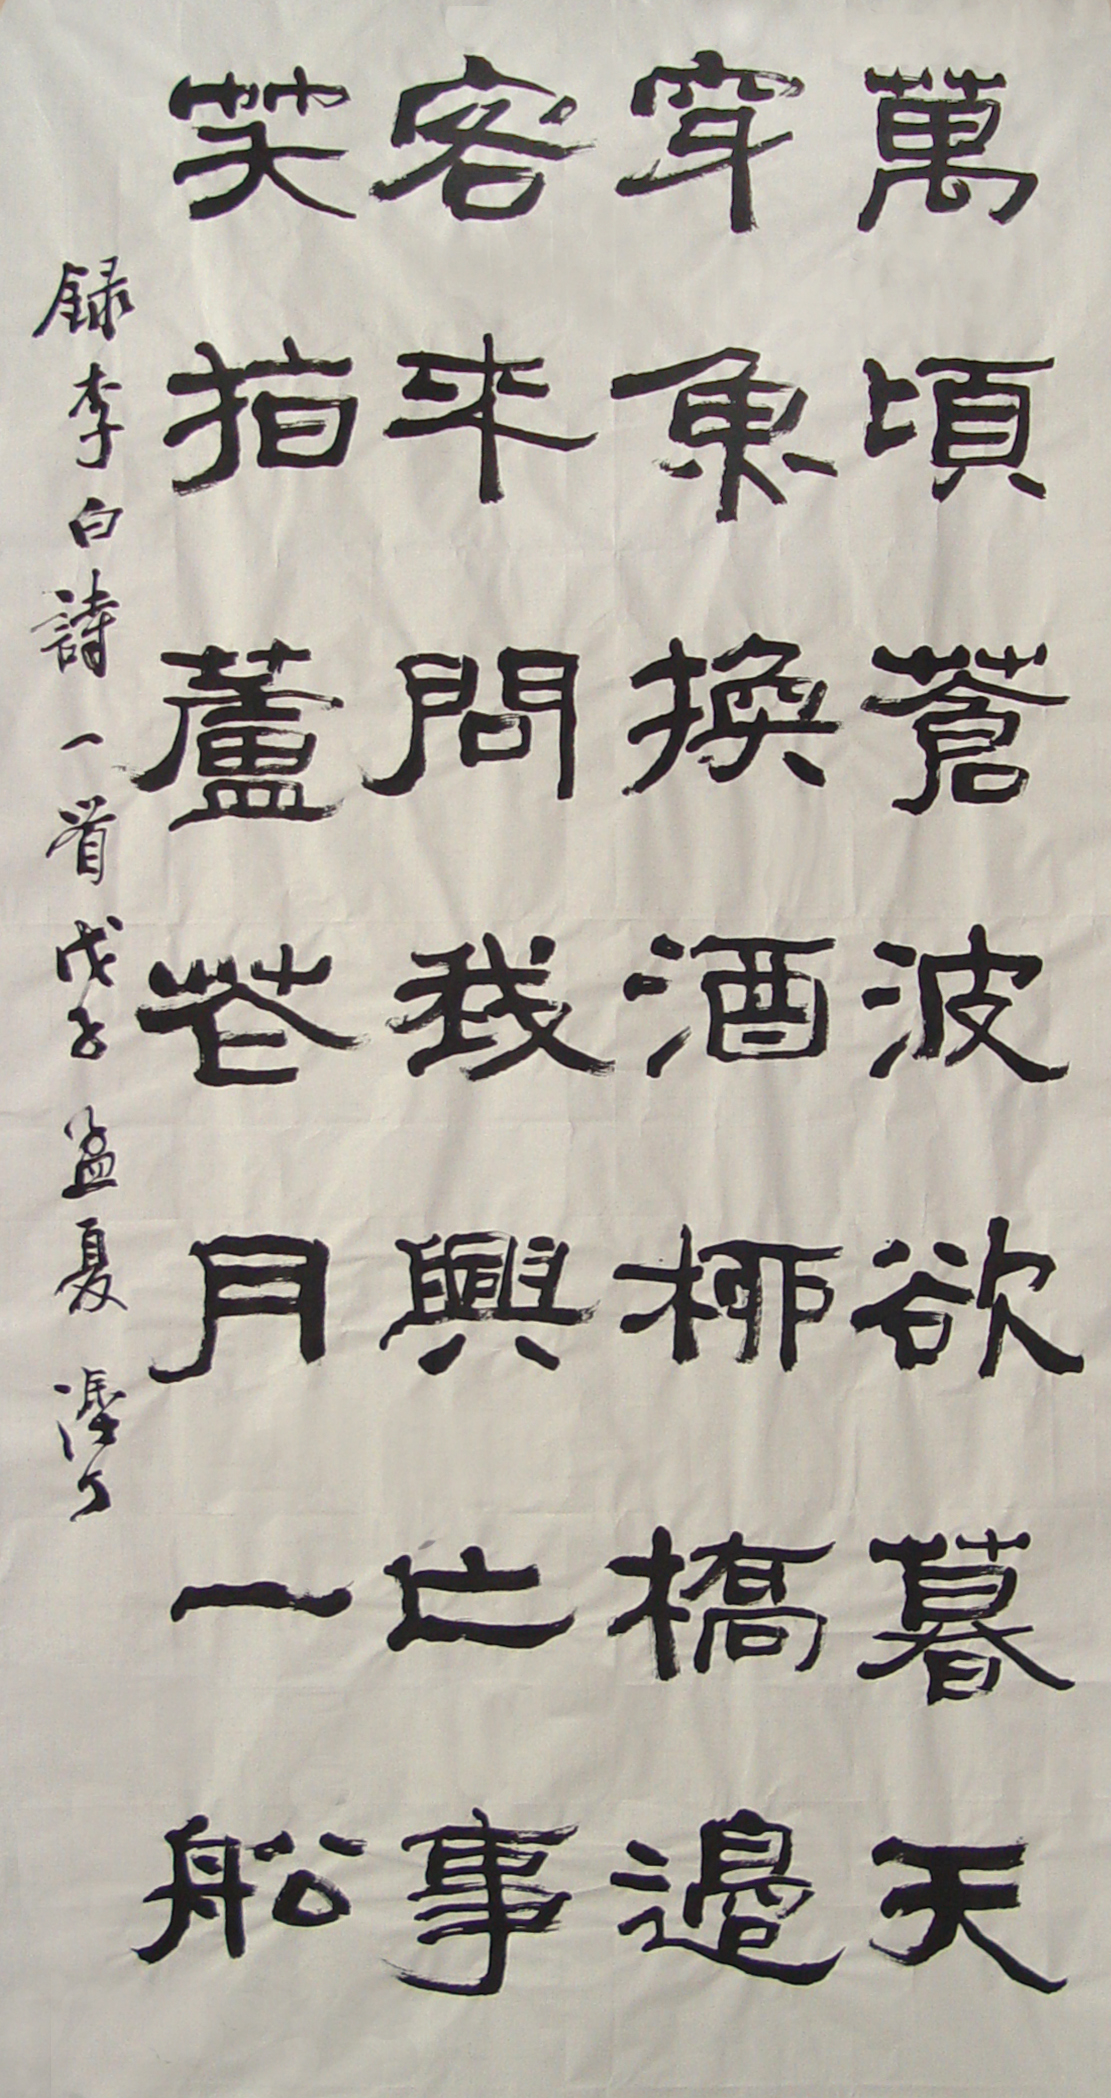 萬頃蒼波欲暮天
穿魚換酒柳橋邊
客來問我興亡事
笑指蘆花月一舩
録李白詩一首戊子孟夏